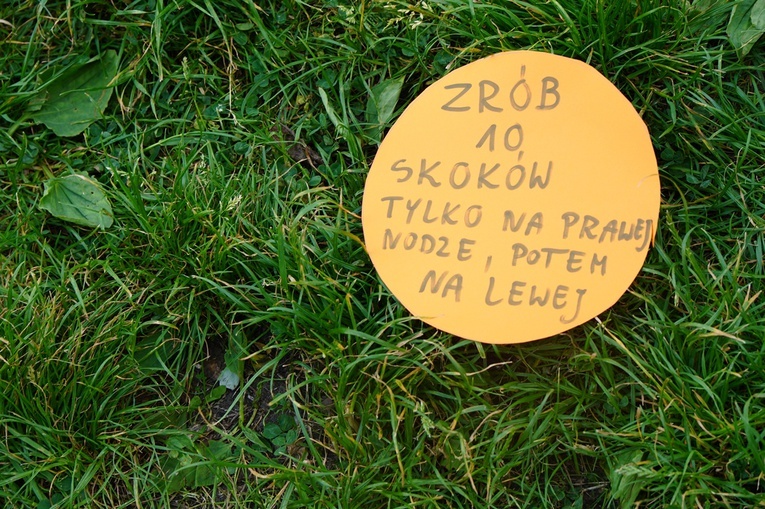 ZRÓB
10
SKOKÓW
TYLKO NA PRAWEJ
NODZE, POTEM
NA LEWEJ